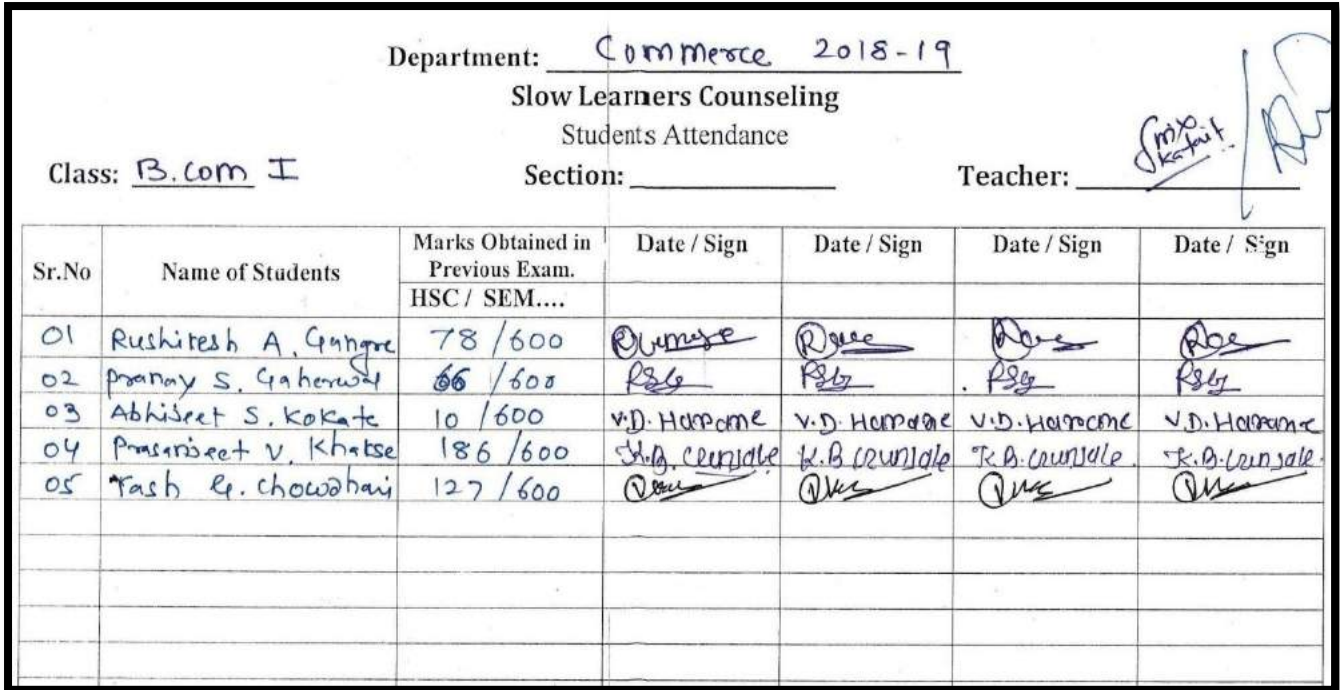 Department: Commerce 2018-19
Slow Learners Counseling
Students Attendance
Class: B.com I Section: Teacher:
Sr.No Name of Students Marks Obtained in Previous Exam. HSC / SEM.... Date / Sign Date / Sign Date / Sign Date / Sign
01 Rushikesh A. Gangre 78/600
02 Pranay S. Gaherwal 66/600 PSG PSG PSG PSG
03 Abhijeet S. Kokate 10/600 V.D. V.D. V.D. V.D.
04 Prasanjeet V. Khatse 186/600 K.B. K.B. K.B. K.B.
05 Yash G. Chowdhari 127/600